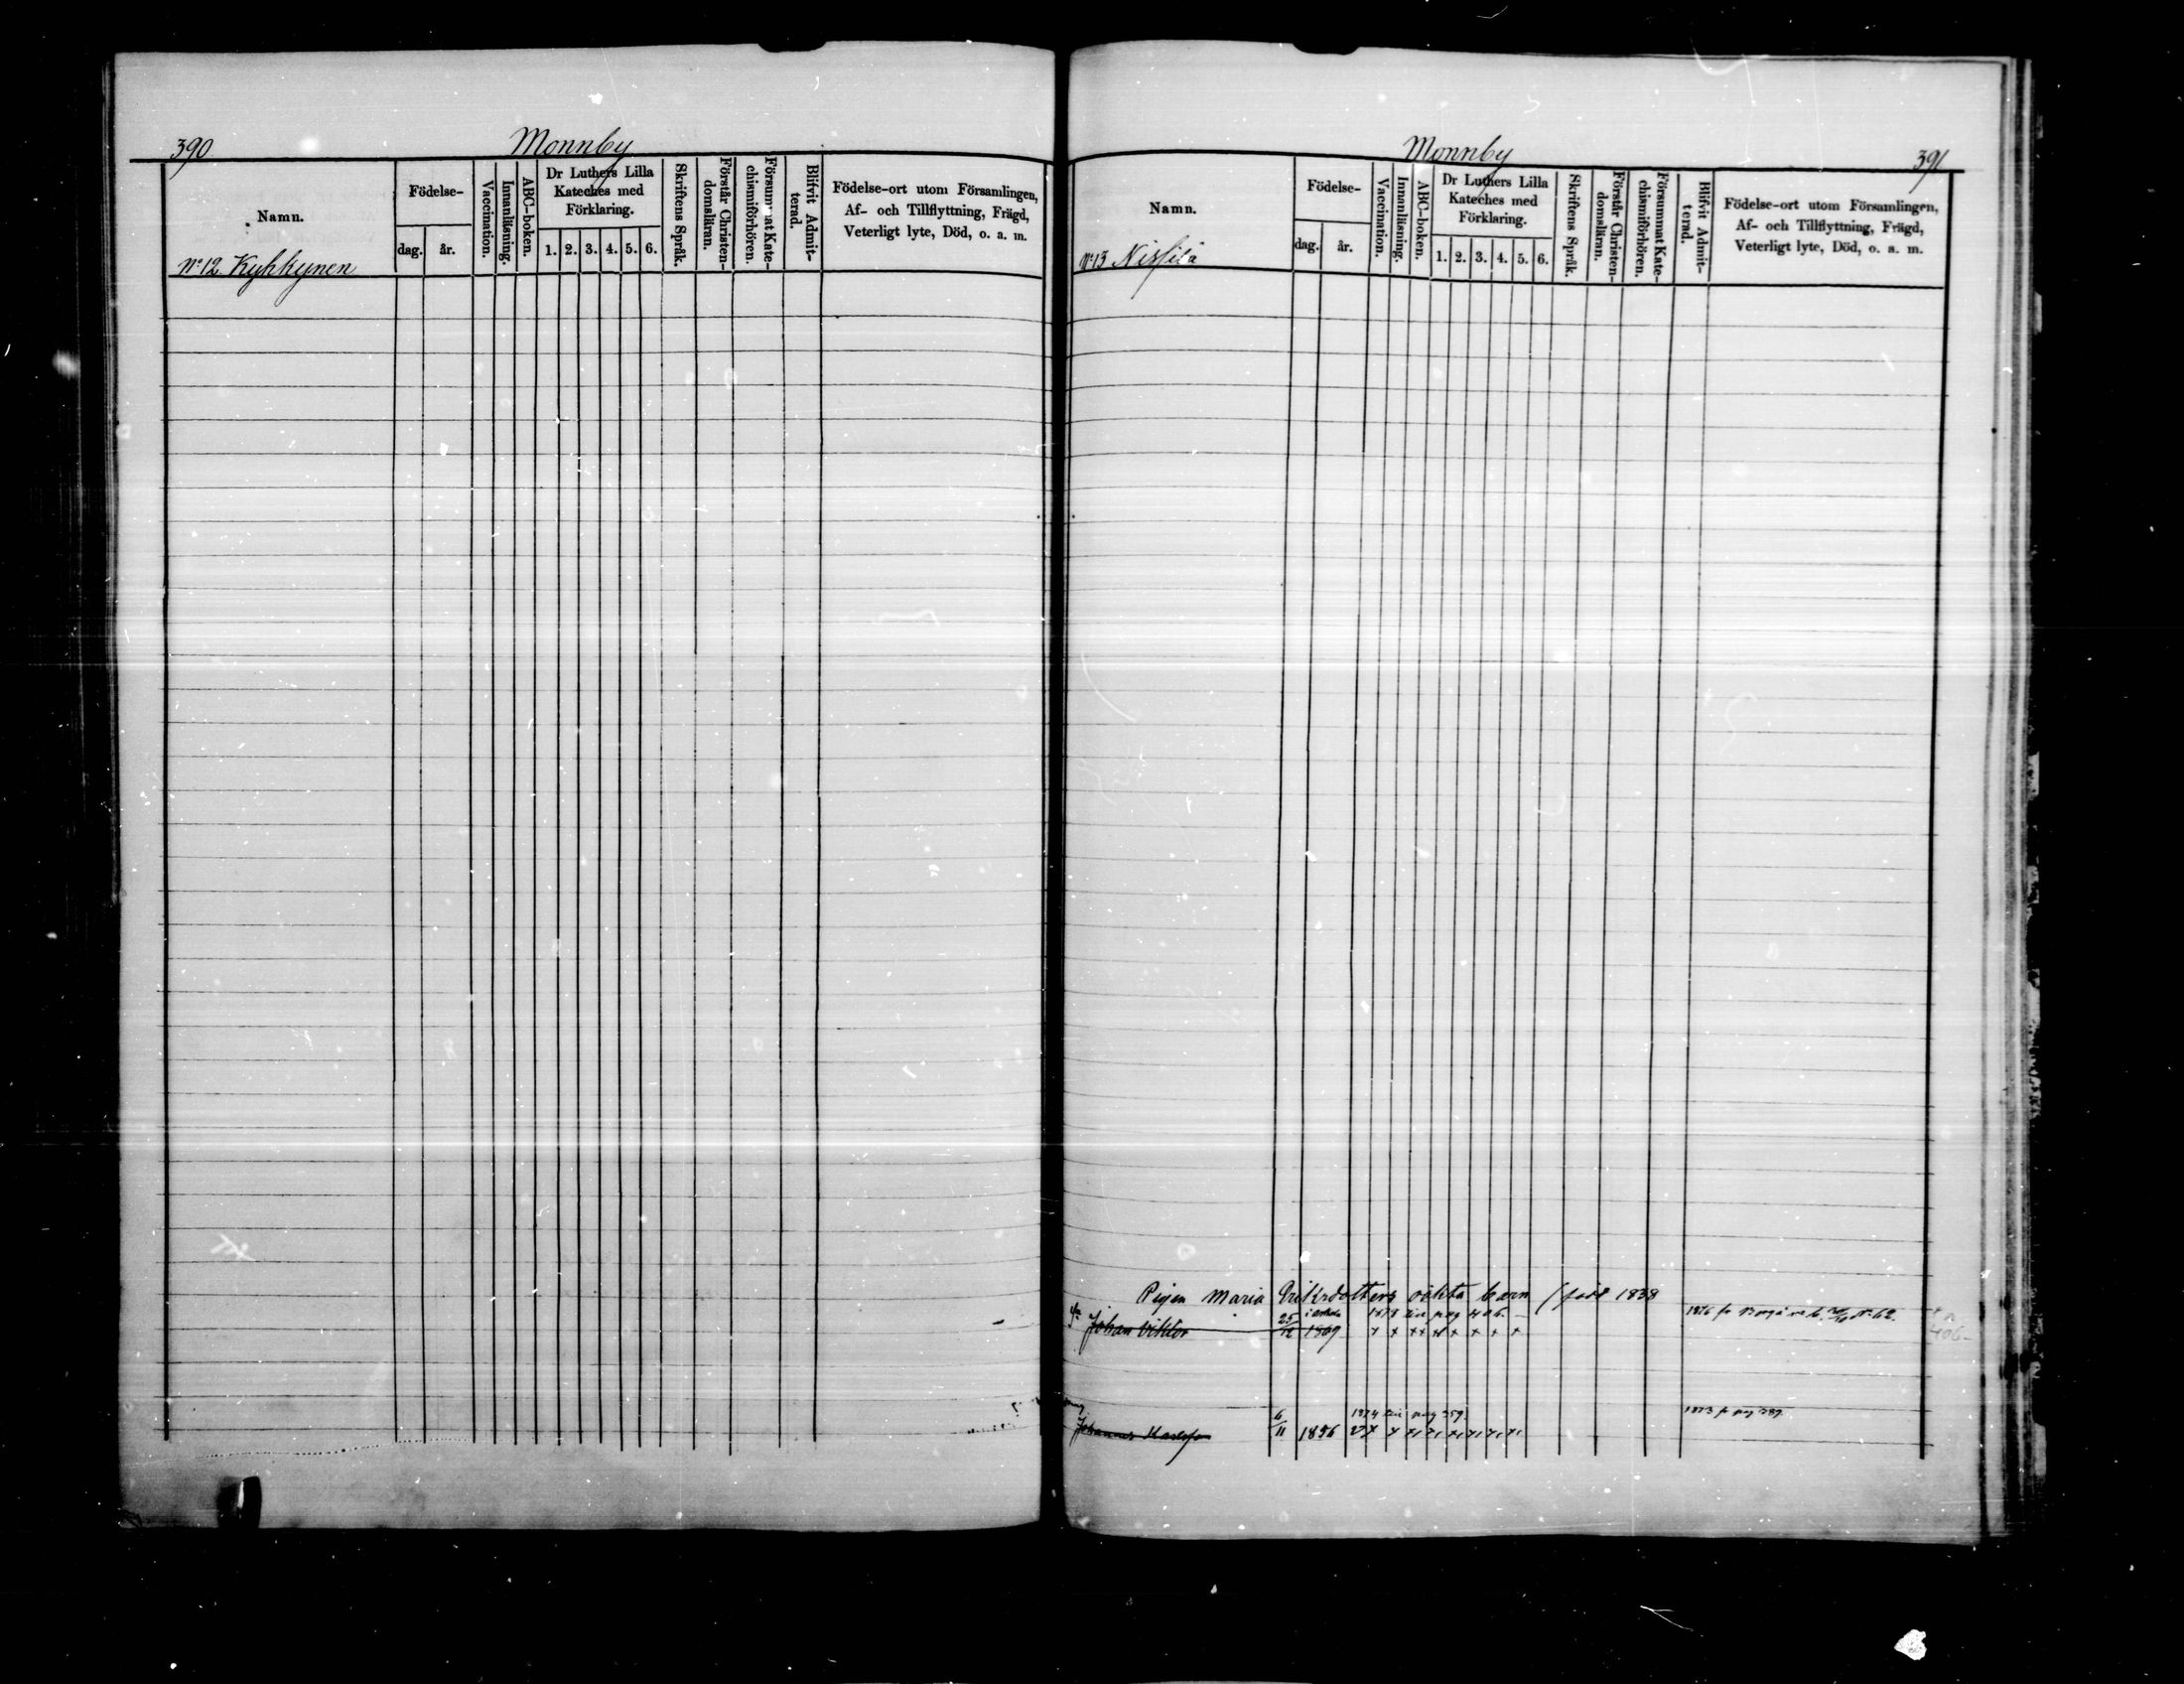 390
Monnby
Namn.
Födelse-
dag. år.
Vaccination.
Innanläsning.
ABC-boken.
Dr Luthers Lilla
Kateches med
Förklaring.
1. 2. 3. 4. 5. 6.
Skriftens Språk.
Förstår Christen-
domsläran.
Försummat Kate-
chismiförhören.
Blifvit Admit-
terad.
Födelse-ort utom Församlingen,
Af- och Tillflyttning, Frägd,
Veterligt lyte, Död, o. a. m.
No 12 Kyhkynen
Monnby
391
Namn.
Födelse-
dag. år.
Vaccination.
Innanläsning.
ABC-boken.
Dr Luthers Lilla
Kateches med
Förklaring.
1. 2. 3. 4. 5. 6.
Skriftens Språk.
Förstår Christen-
domsläran.
Försummat Kate-
chismiförhören.
Blifvit Admit-
terad.
Födelse-ort utom Församlingen,
Af- och Tillflyttning, Frägd,
Veterligt lyte, Död, o. a. m.
No 13 Nissilä
Pigan Maria oäkta barn (född 1838
1878 till pag 406. 1876 fr Borgå No 62.
Johan Viktor 25/12 1869 x x xx x x x x x
406
1874 till pag 259. 1873 fr pag 289.
Johannes 6/11 1856